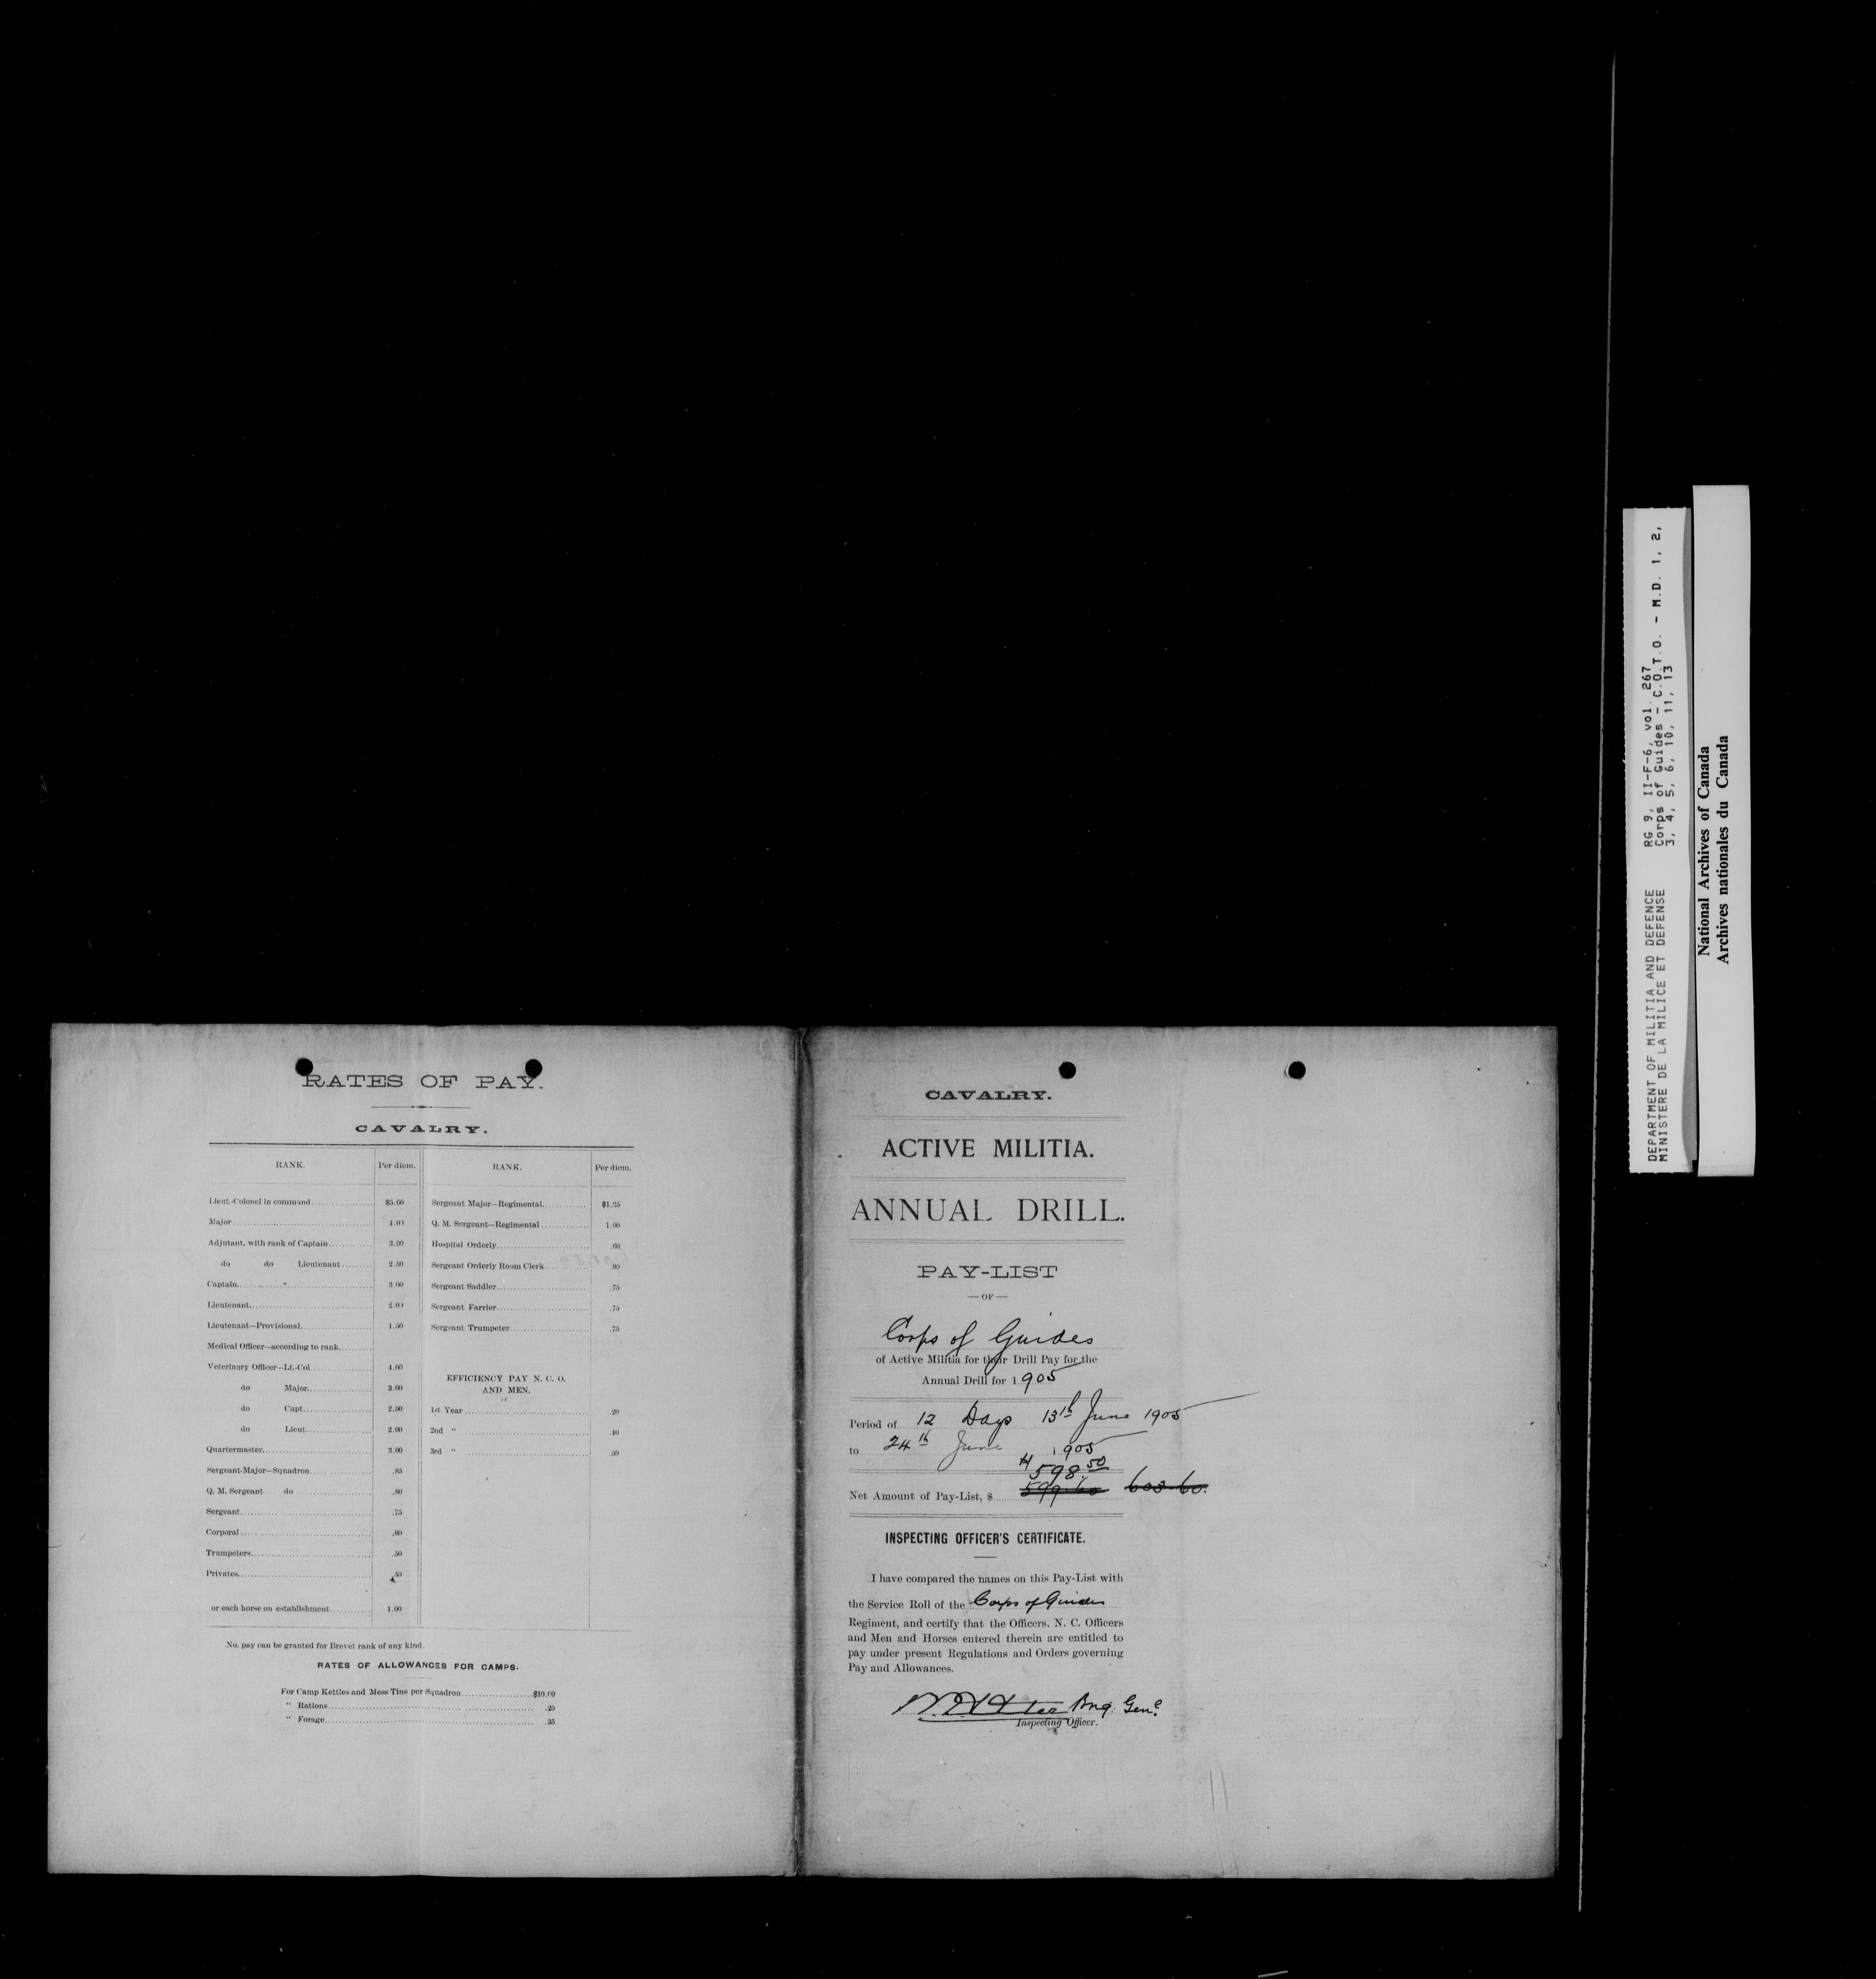 RATES OF PAY.
CAVALRY.
RANK. Per diem. RANK. Per diem.
Lieut.-Colonel in command $5.00 Sergeant Major—Regimental $1.25
Major 4.00 Q. M. Sergeant—Regimental 1.00
Adjutant, with rank of Captain 3.00 Hospital Orderly .60
do do Lieutenant 2.50 Sergeant Orderly Room Clerk .90
Captain 3.00 Sergeant Saddler .75
Lieutenant 2.00 Sergeant Farrier .75
Lieutenant—Provisional 1.50 Sergeant Trumpeter .75
Medical Officer—according to rank
Veterinary Officer—Lt.-Col. 4.00
do Major 3.00 EFFICIENCY PAY N. C. O.
AND MEN.
do Capt. 2.50 1st Year .20
do Lieut. 2.00 2nd " .40
Quartermaster 3.00 3rd " .50
Sergeant-Major—Squadron .85
Q. M. Sergeant do .80
Sergeant .75
Corporal .60
Trumpeters .50
Privates .50
or each horse on establishment 1.00
No. pay can be granted for Brevet rank of any kind.
RATES OF ALLOWANCES FOR CAMPS.
For Camp Kettles and Mess Tins per Squadron $10.00
" Rations .25
" Forage .35
CAVALRY.
ACTIVE MILITIA.
ANNUAL DRILL.
PAY-LIST
— OF —
Corps of Guides
of Active Militia for their Drill Pay for the
Annual Drill for 1905
Period of 12 Days 13th June 1905
to 24th June 1905
$598.50
Net Amount of Pay-List, $ 599.60 603.60.
INSPECTING OFFICER'S CERTIFICATE.
I have compared the names on this Pay-List with
the Service Roll of the Corps of Guides
Regiment, and certify that the Officers, N. C. Officers
and Men and Horses entered therein are entitled to
pay under present Regulations and Orders governing
Pay and Allowances.
Brig. Genl.
Inspecting Officer.
DEPARTMENT OF MILITIA AND DEFENCE RG 9, II-F-6, vol. 267
MINISTERE DE LA MILICE ET DEFENSE Corps of Guides - C.O.T.O. - M.D. 1, 2,
3, 4, 5, 6, 10, 11, 13
National Archives of Canada
Archives nationales du Canada